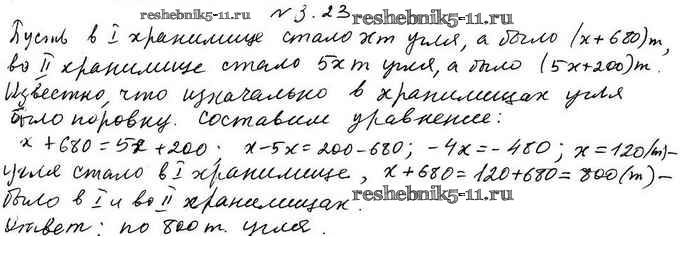 reshebnik5-11.ru
№ 3.23 reshebnik5-11.ru
Пусть в I хранилище стало x т угля, а было (x+680) т,
во II хранилище стало 5x т угля, а было (5x+200) т.
Известно, что изначально в хранилищах угля
было поровну. Составим уравнение:
x+680=5x+200; x-5x=200-680; -4x=-480; x=120 (т)-
угля стало в I хранилище, x+680=120+680=800 (т)-
было в I и во II хранилищах. reshebnik5-11.ru
Ответ: по 800 т. угля.